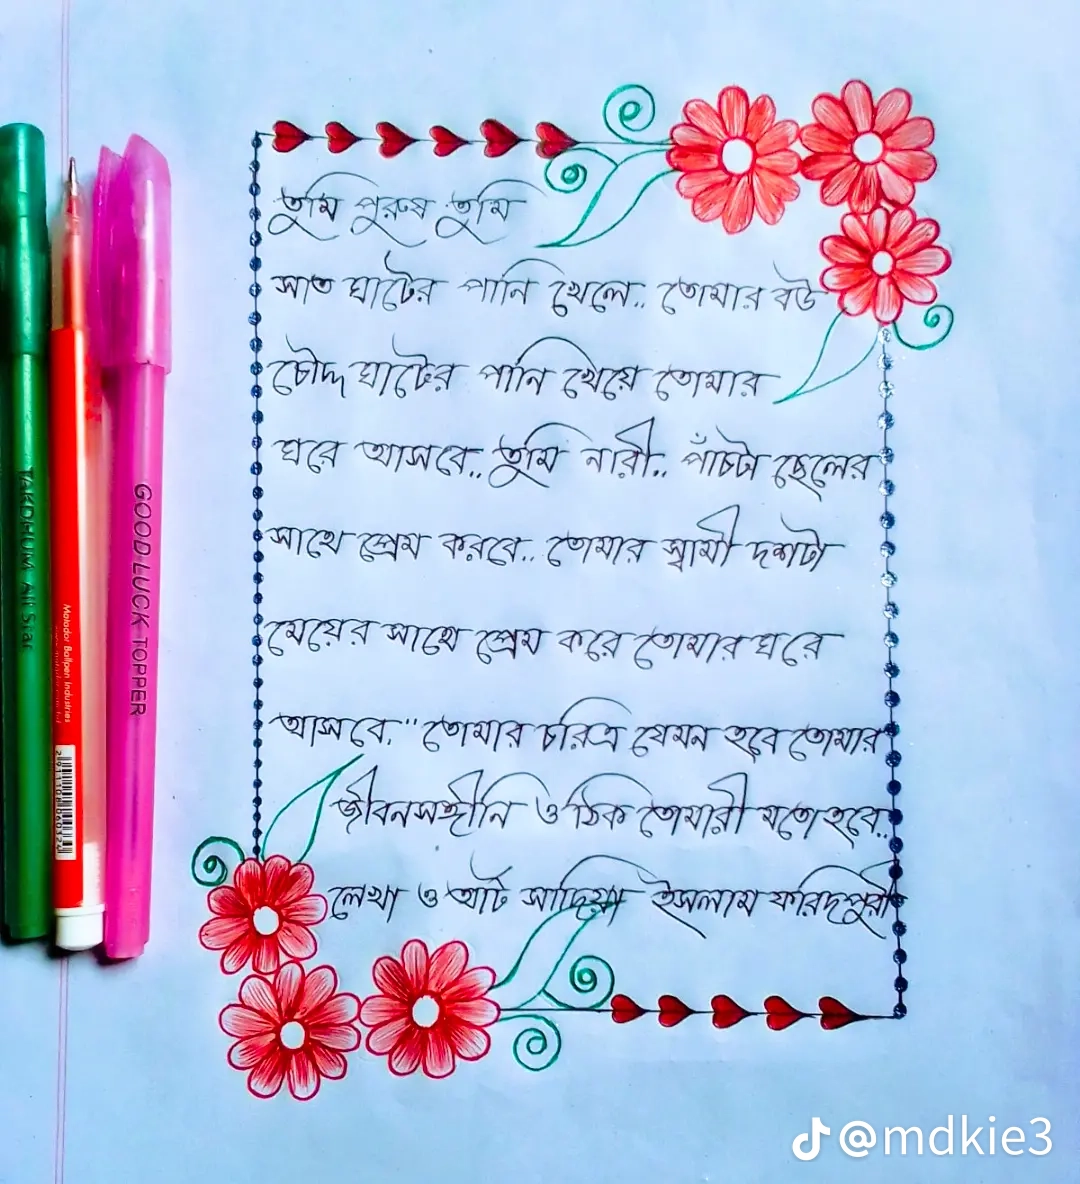 তুমি পুরুষ তুমি
সাত ঘাটের পানি খেলে.. তোমার বউ
চৌদ্দ ঘাটের পানি খেয়ে তোমার
ঘরে আসবে.. তুমি নারী.. পাঁচটা ছেলের
সাথে প্রেম করবে.. তোমার স্বামী দশটা
মেয়ের সাথে প্রেম করে তোমার ঘরে
আসবে.." তোমার চরিত্র যেমন হবে তোমার
জীবনসঙ্গীনি ও ঠিক তোমারী মতো হবে..
লেখা ও আর্ট সাদিয়া ইসলাম ফরিদপুরী
TAKDHUM All Star
Matador Ballpen Industries
GOOD LUCK TOPPER
@mdkie3